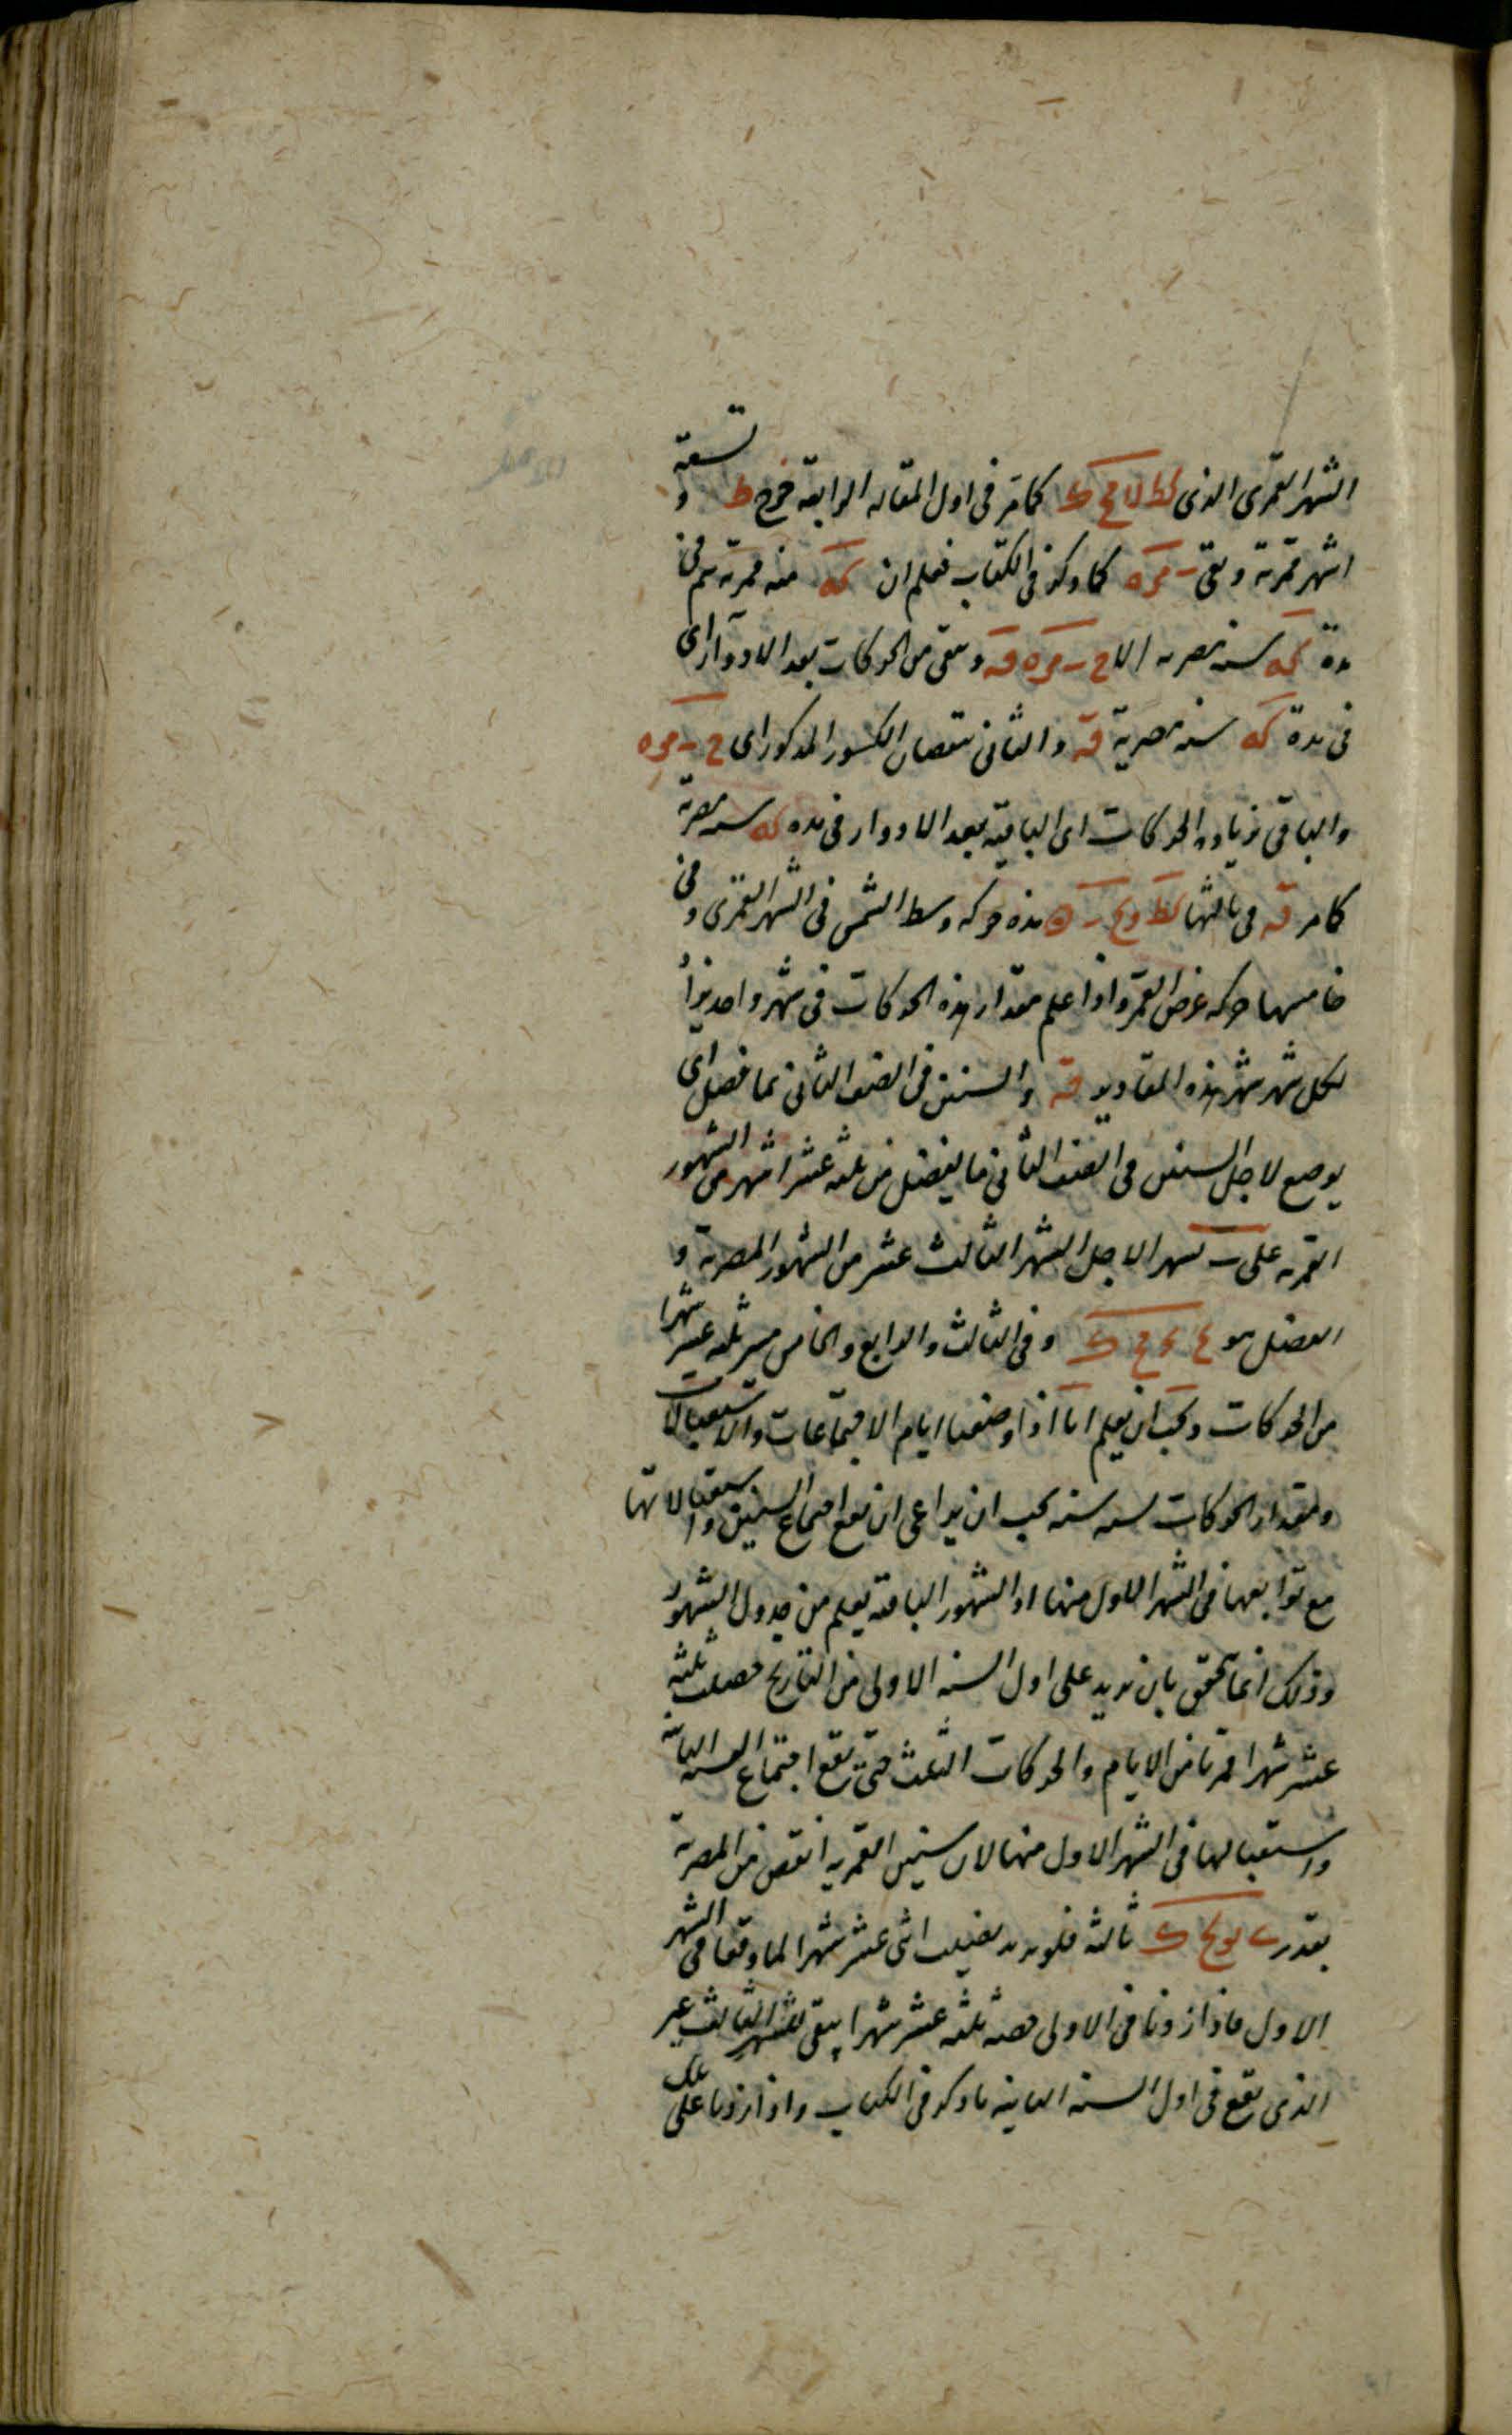 الشهر القمرى الذى كط لا ح ك كما مر فى اول المقاله الرابعة خرج ط تسعة و
اشهر قمرية وبقى مره كما ذكر فى الكتاب فعلم ان كه سنه قمرية يتم فى
مدة كه سنه مصريه الا ح مره قه وتبقى من الحركات بعد الادوار اى
فى مدة كه سنه مصرية قه والثانى بنقصان الكسور المذكور اى ح مره
والباقى بزيادة الحركات اى الباقية بعد الادوار فى مده كه سنه مصرية
كما مر قه فى ثالثها كط و هذه حركه وسط الشمس فى الشهر القمرى وفى
خامسها حركه عرض القمر واذا علم مقدار هذه الحركات فى شهر واحد يزاد
لكل شهر شهر هذه المقادير قه والسنين فى الصنف الثانى بما فضل اى
يوضع لاجل السنين فى الصنف الثانى ما يفضل من ثلثه عشر اشهر من الشهور
القمريه على لاجل الشهر الثالث عشر من الشهور المصرية و
الفضل هو ح ك وفى الثالث والرابع والخامس مسير ثلثه عشر شهرا
من الحركات ويجب ان يعلم انا اذا وضعنا ايام الاجتماعات والاستقبالات
ومقدار الحركات سنه سنه يجب ان يراعى ان يقع اجتماع السنين واستقبالاتها
مع توابعها فى الشهر الاول منها اذ الشهور الباقية يعلم من جدول الشهور
وذلك انما يتحقق بان نزيد على اول السنه الاولى من التاريخ حصة ثلثه
عشر شهرا قمريا من الايام والحركات الثلث حتى يقع اجتماع السنه الثانية
واستقبالها فى الشهر الاول منها لان سنين القمريه انقص من المصرية
بقدر ى ك ثالثه فلو نزيد اثنى عشر شهرا لما وقعا فى الشهر
الاول فاذا زدنا فى الاولى حصة ثلثه عشر شهرا يبقى الشهر الثالث عشر
الذى يقع فى اول السنه الثانيه ما ذكر فى الكتاب واذا زدنا على تلك